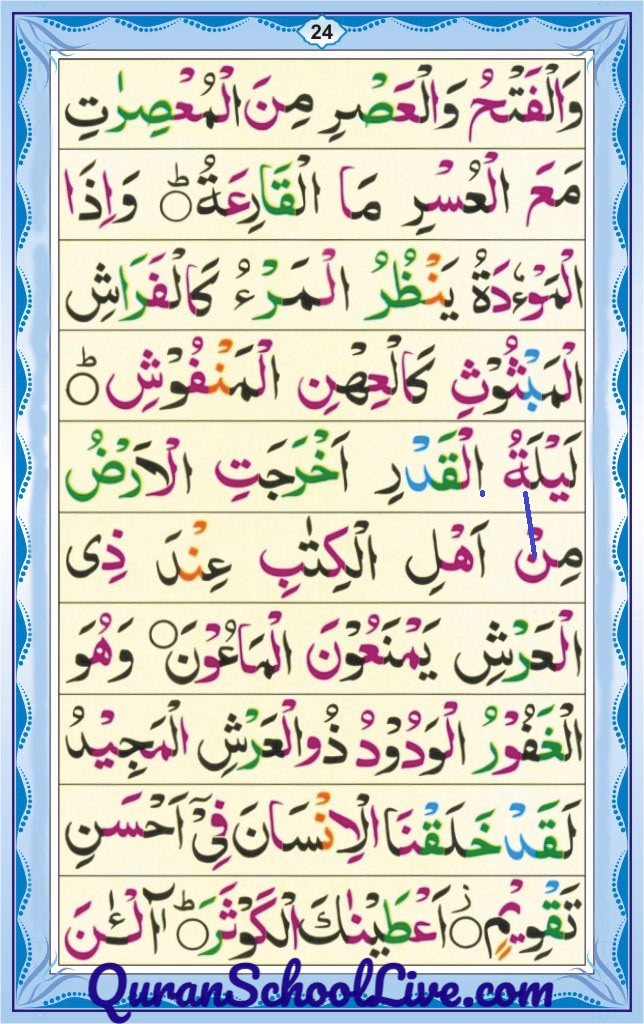 24
وَالْفَتْحُ وَالْعَصْرِ مِنَ الْمُعْصِرٰتِ
مَعَ الْعُسْرِ مَا الْقَارِعَةُ ○ؕ وَاِذَا
الْمَوْءٗدَةُ يَنْظُرُ الْمَرْءُ كَالْفَرَاشِ
الْمَبْثُوْثِ كَالْعِهْنِ الْمَنْفُوْشِ ○ؕ
لَيْلَةُ الْقَدْرِ اَخْرَجَتِ الْاَرْضُ
مِنْ اَهْلِ الْكِتٰبِ عِنْدَ ذِى
الْعَرْشِ يَمْنَعُوْنَ الْمَاعُوْنَ ○ وَهُوَ
الْغَفُوْرُ الْوَدُوْدُ ذُوالْعَرْشِ الْمَجِيْدُ
لَقَدْ خَلَقْنَا الْاِنْسَانَ فِىْۤ اَحْسَنِ
تَقْوِيْمٍ ○ز اَعْطَيْنٰكَ الْكَوْثَرَ ○ؕ آلْـٰٔنَ
QuranSchoolLive.com